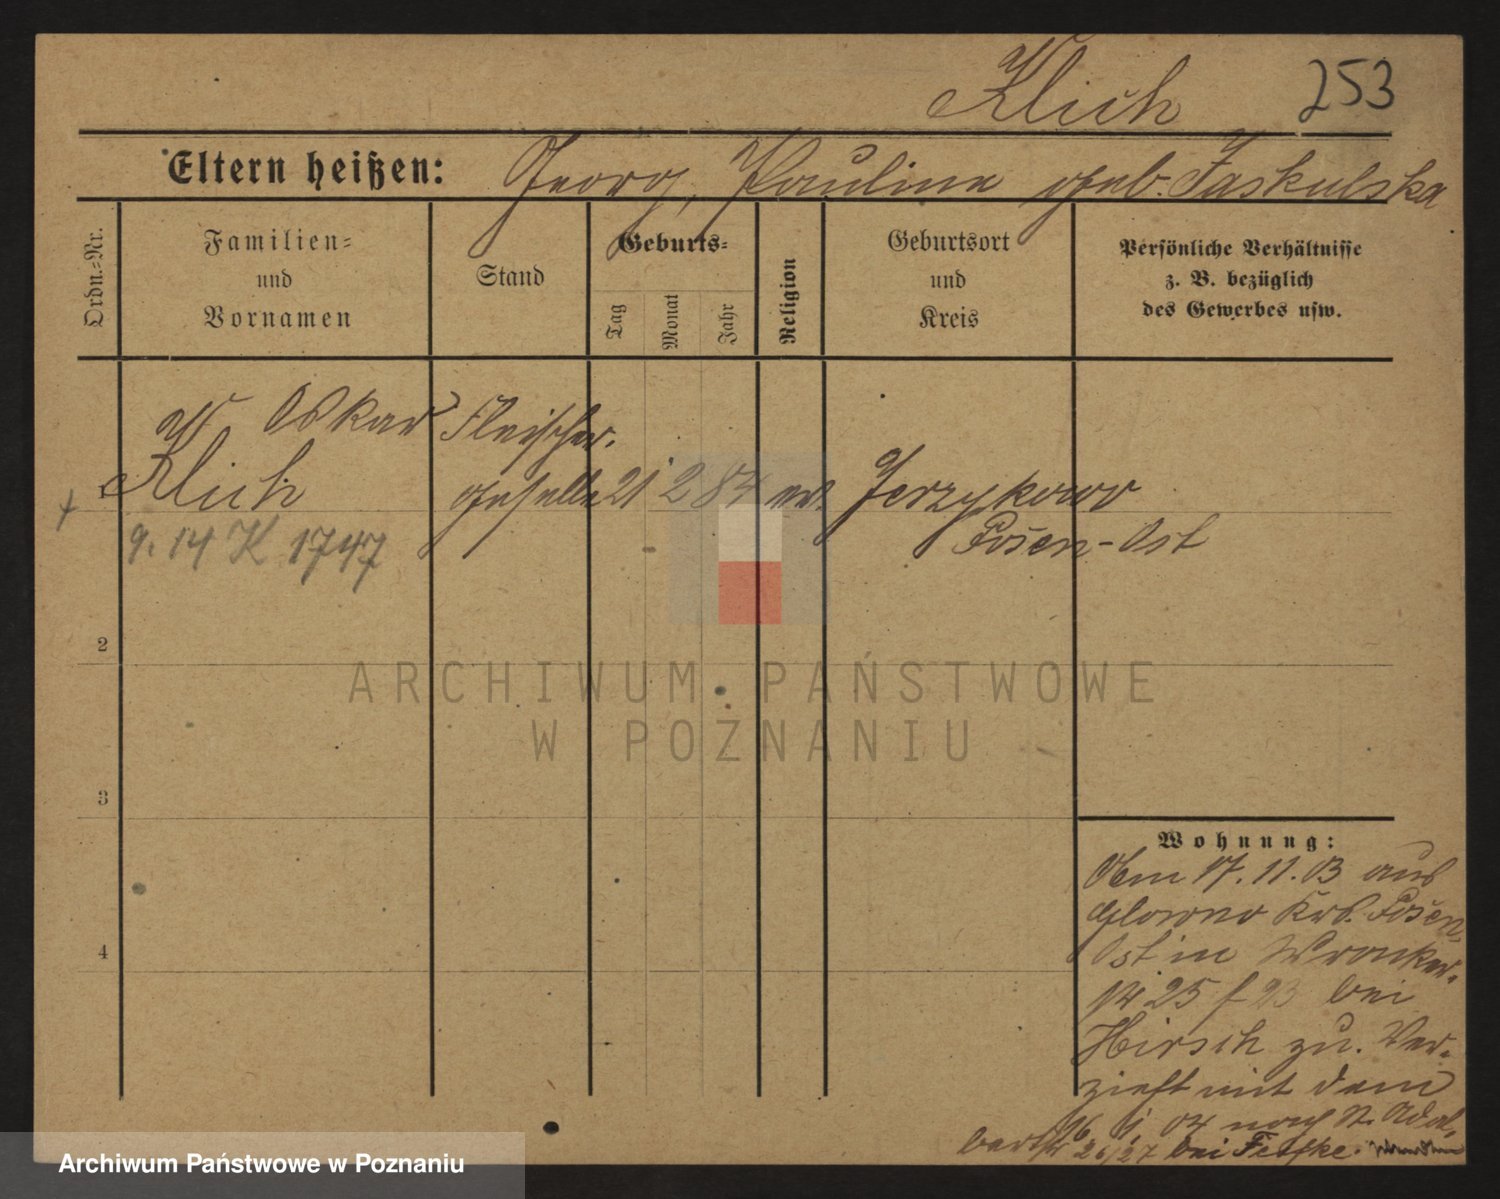 Klich 253
Eltern heißen: Georg, Pauline geb. Jaskulska
Ordn.=Nr.
Familien=
und
Vornamen
Stand
Geburts=
Tag
Monat
Jahr
Religion
Geburtsort
und
Kreis
Persönliche Verhältnisse
z. B. bezüglich
des Gewerbes usw.
Oskar Fleischer.
1 Klich geselle 21 2 84 ev. Jerzykowo
Posen-Ost
9. 14 K 1747
2
3
4
Wohnung:
17. 11. 03 aus
Glowno Krs. Posen
Ost in Wronker-
str 25 f 23 bei
Hirsch zu. Ver-
zieht mit dem
6. 1. 04 nach St. Adal-
bertstr 26/27 bei
ARCHIWUM PAŃSTWOWE
W POZNANIU
Archiwum Państwowe w Poznaniu